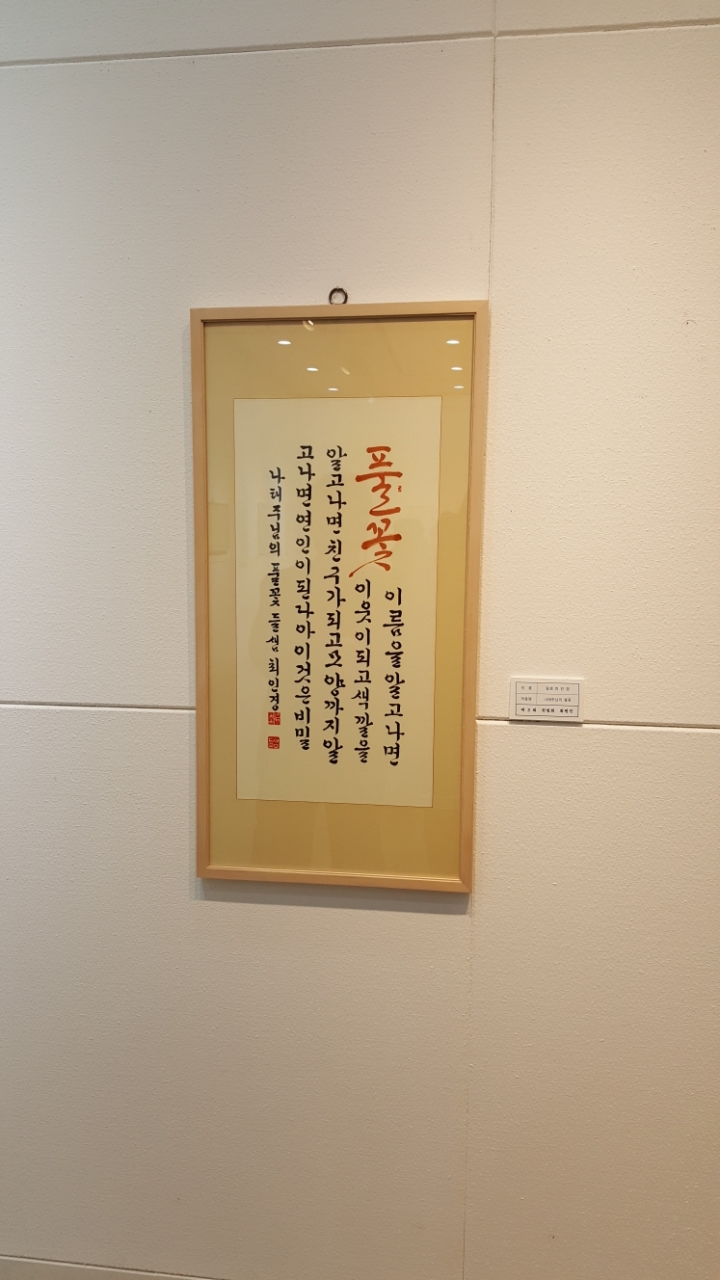 풀꽃
이름을알고나면
이웃이되고색깔을
알고나면친구가되고모양까지알
고나면연인이된다아이것은비밀
나태주님의 풀꽃 들샘 최인경